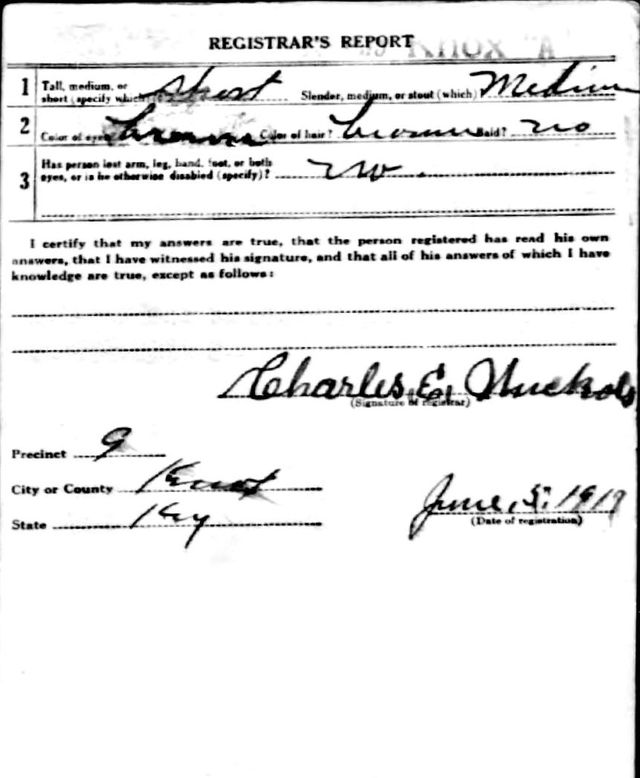 REGISTRAR'S REPORT
KNOX "A"
1 Tall, medium, or short (specify which)? Short Slender, medium, or stout (which)? Medium
2 Color of eyes? brown Color of hair? brown Bald? no
3 Has person lost arm, leg, hand, foot, or both
eyes, or is he otherwise disabled (specify)? no.
I certify that my answers are true, that the person registered has read his own
answers, that I have witnessed his signature, and that all of his answers of which I have
knowledge are true, except as follows:
Charles E. Nuckols
(Signature of registrar)
Precinct 9
City or County Knox
State Ky
June, 5, 1917
(Date of registration)